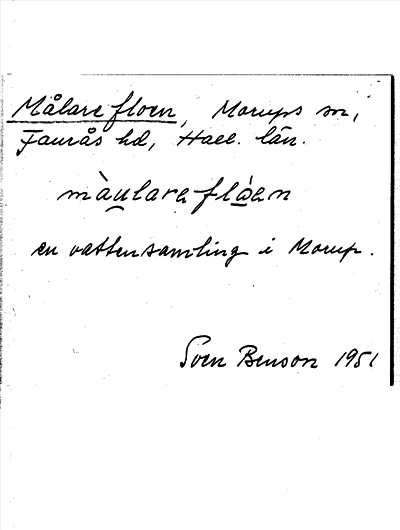 Målare floen, Morups sn,
Faurås hd, Hall. län.
màu̯lareflɷ̀en
en vattensamling i Morup.
Sven Benson 1951